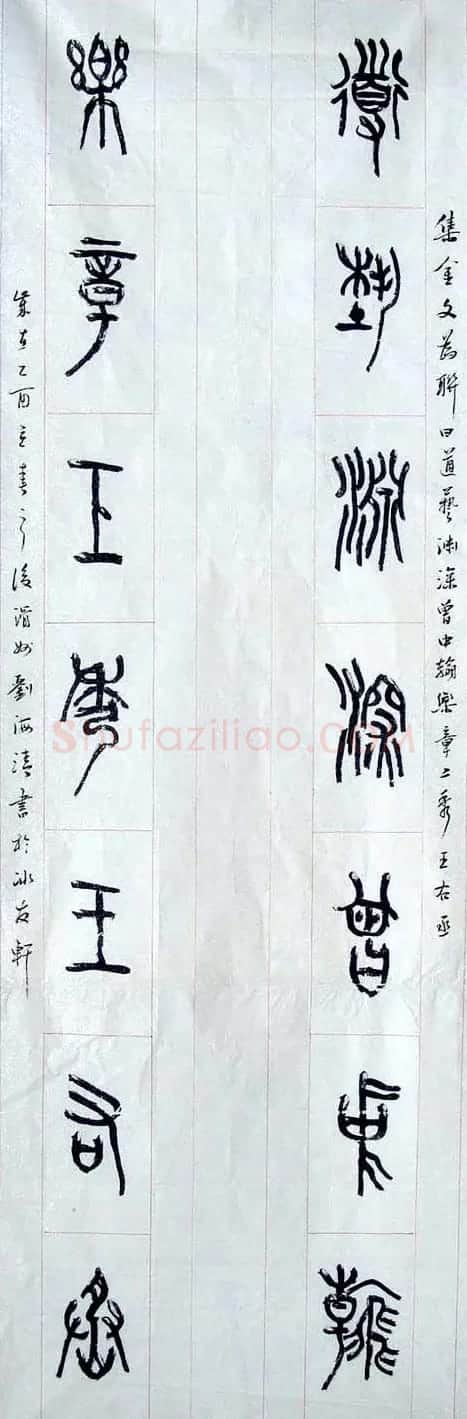 集金文為聯曰道藝淵深曾中翰樂章秀王右丞
道藝淵深曾中翰
樂章秀王右丞
歲在乙酉立春之後劉海清書於冰友軒
Shufaziliao.COM